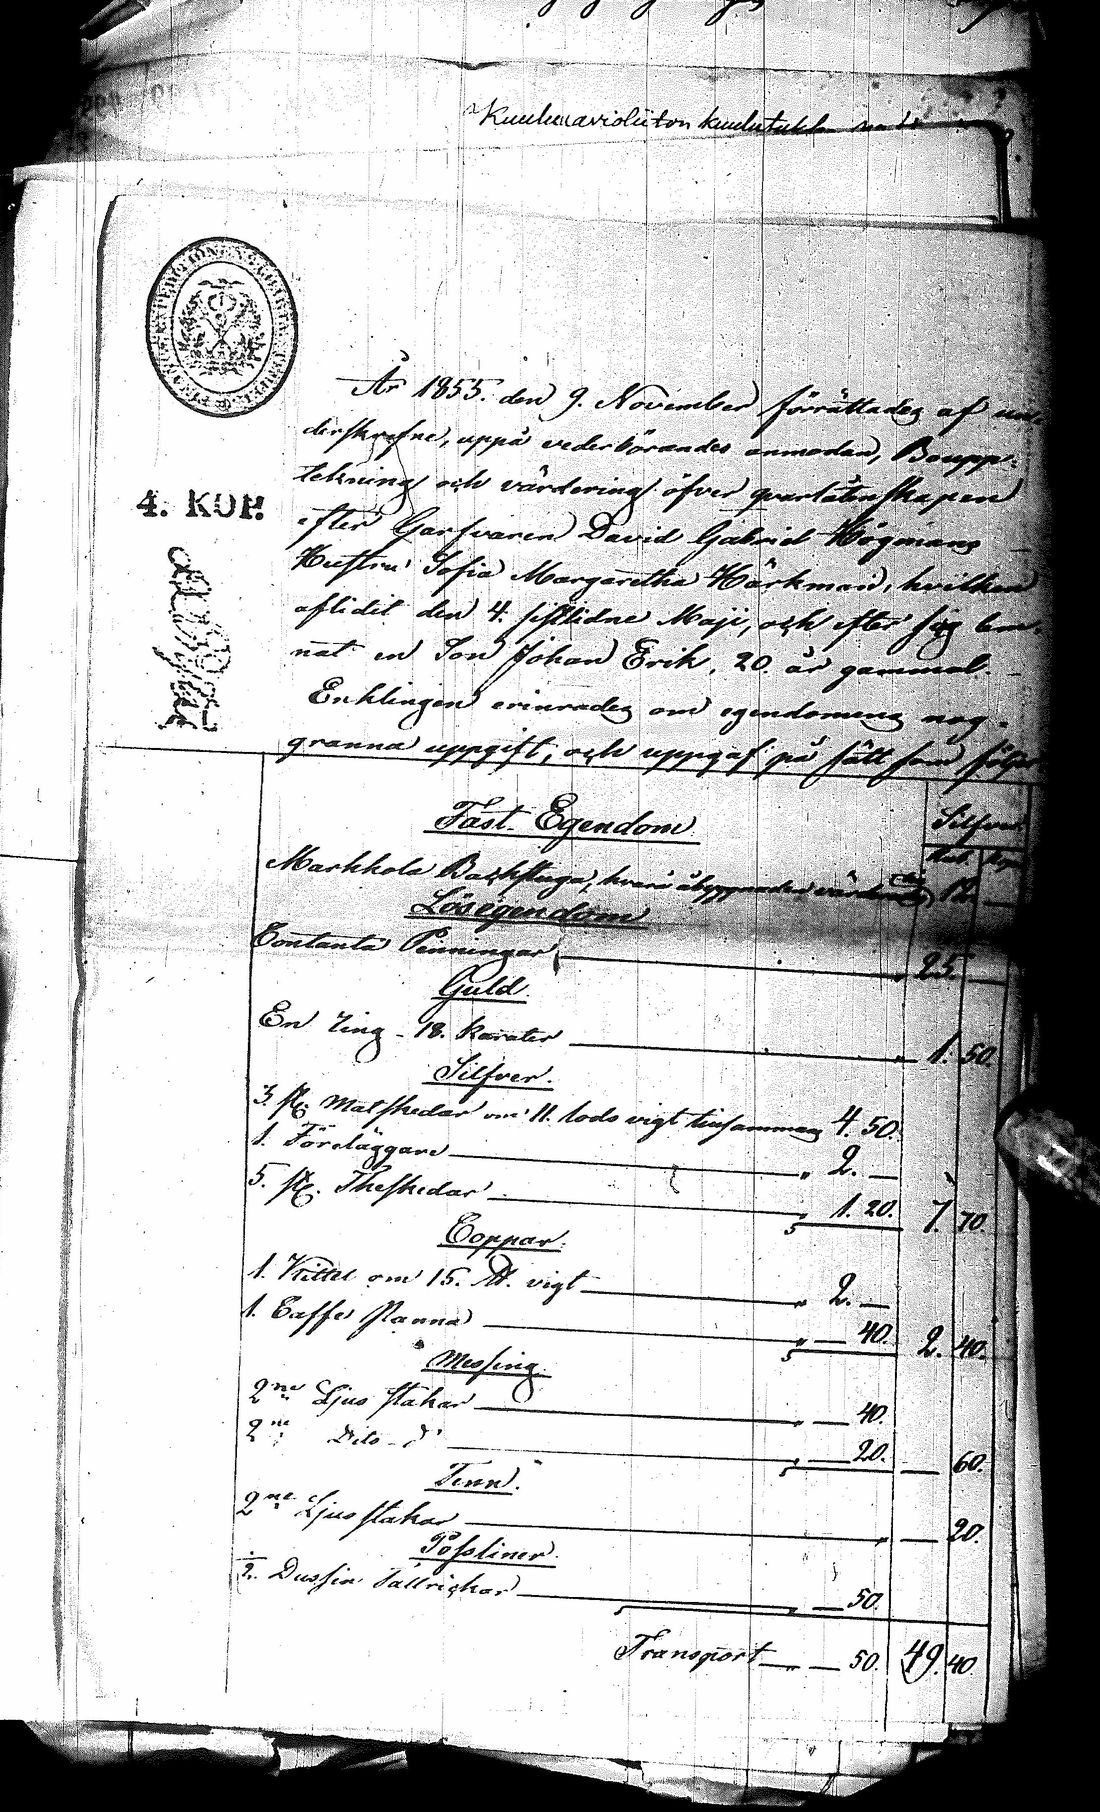 Kuulutavioliiton kuulutukses
4. KOP.
År 1855. den 9. November förrättades af un-
derskrefne, uppå vederbörandes anmodan, Boupp-
tekning och värdering öfver qvarlåtenskapen
efter Garfvaren David Gabriel Högmans
Hustru Sofia Margaretha Härkman, hvilken
aflidit den 4. sistlidne Maji, och efter sig lem-
nat en Son Johan Erik, 20. år gammal.
Enklingen erinrades om egendomens nog-
granna uppgift, och uppgaf på sätt som följer
Fast Egendom Silfver
Rub. Kop.
Markkola Backstuga, hvars åbyggnader värderades 12. —
Lösegendom
Contanta Penningar 25. —
Guld
En Ring - 18. karater " 1. 50.
Silfver.
3. st. Matskedar om 11. lods vigt tillsammans 4. 50.
1. Föreläggare " 2. —
5. st. Theskedar " 1. 20. 7. 70.
Coppar.
1. Kittel om 15. ℔. vigt " 2. —
1. Caffe Panna " — 40. 2. 40.
Messing.
2ne Ljus stakar " — 40.
2ne Dito d° " — 20. — 60.
Tenn.
2ne Ljusstakar " — 20.
Posliner.
½ Dussin Tallrickar " — 50.
Transport — 50. 49. 40.